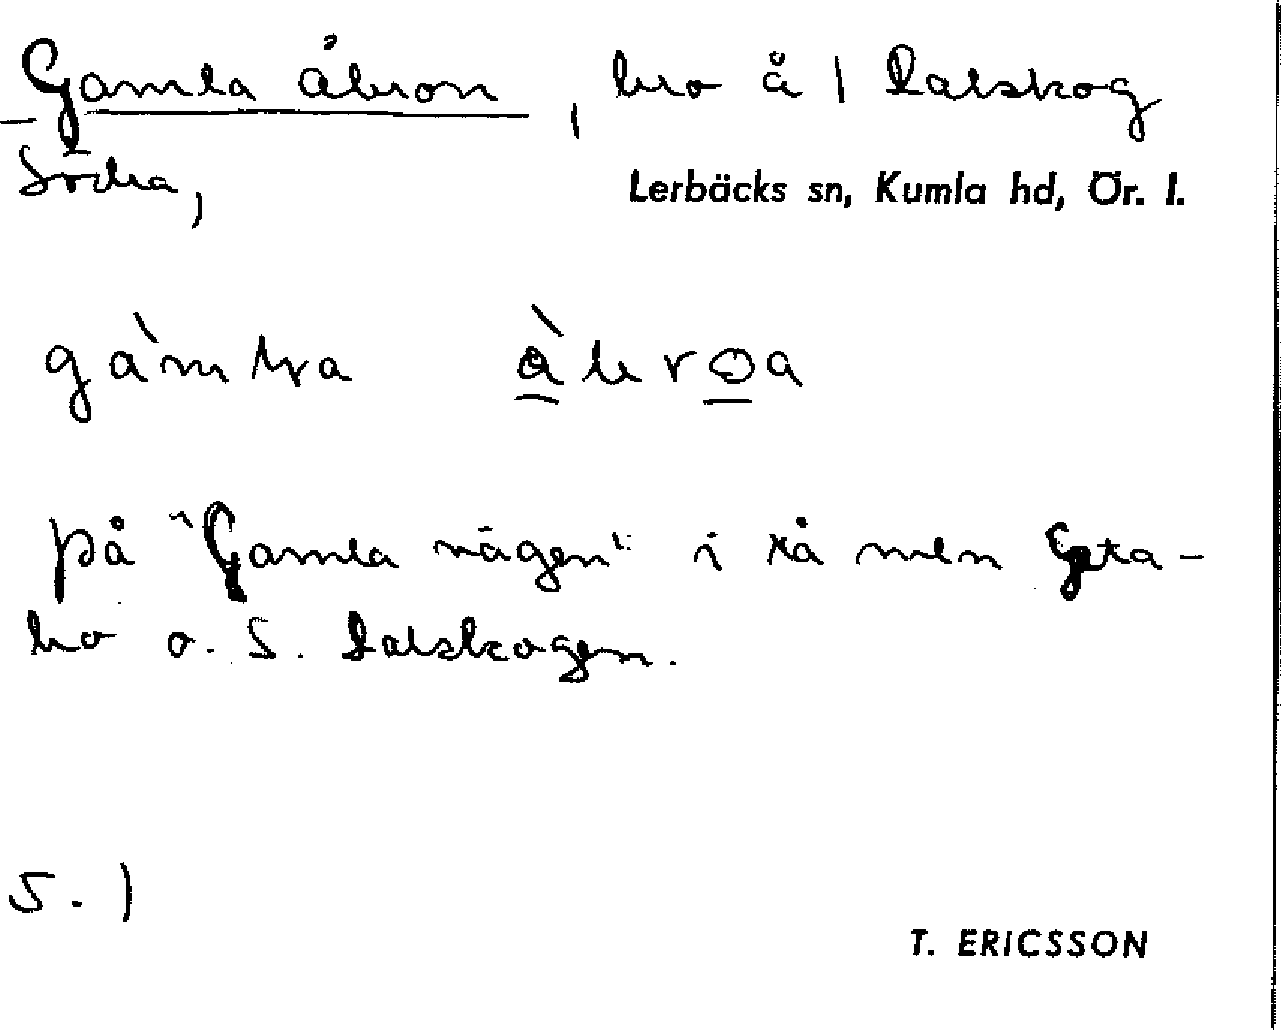 Gamla åbron, bro å 1 Dalskog
Södra,
Lerbäcks sn, Kumla hd, Ör. l.
på "Gamla vägen" i rå mln Geta-
bro o. S. Dalskogen.
5. 1
T. ERICSSON